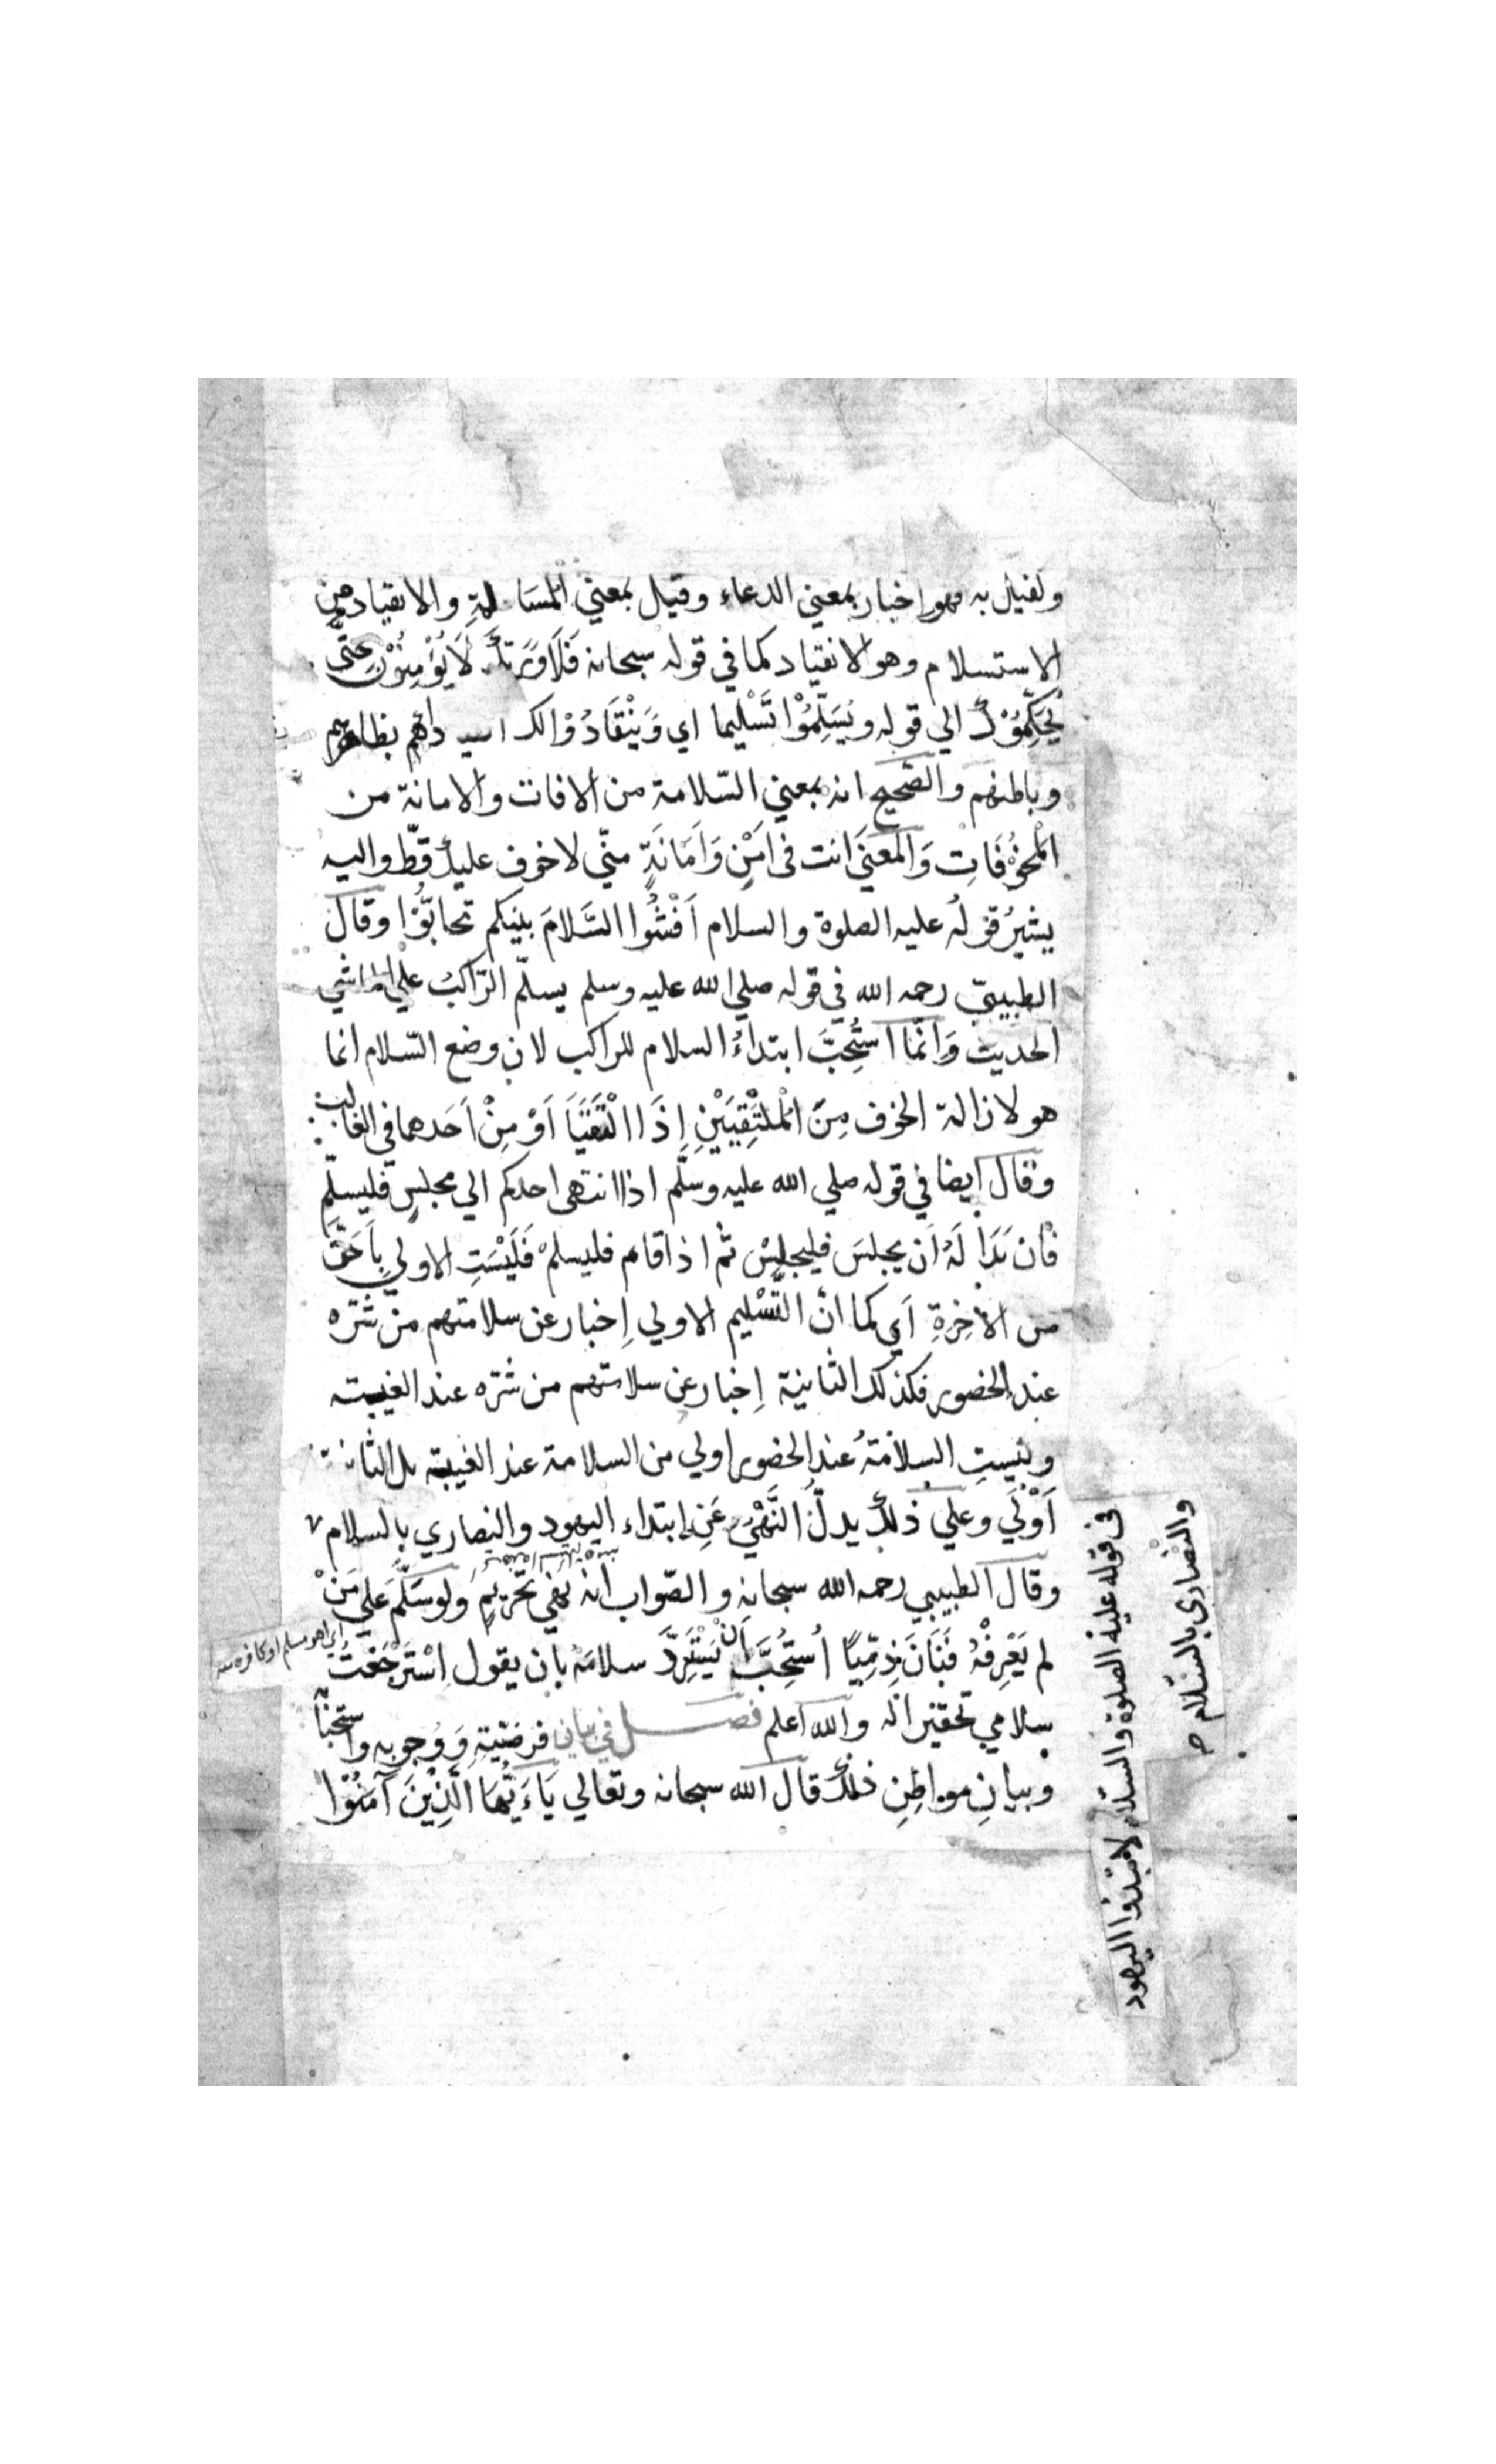 وكفيل به فهو اخبار بمعني الدعاء وقيل بمعني المسالمة والانقياد من
الاستسلام وهو الانقياد كما في قوله سبحانه فَلَا وَرَبِّكَ لَا يُؤْمِنُوْنَ حتّى
يُحَكِّمُوْكَ الي قوله ويُسَلِّمُوْا تَسْليما اي وَيَنْقَادُوْا لك بظاهرهم
وباطنهم والصّحيح انه بمعني السّلامة من الافات والامانة من
المخوْفَاتِ وَالمعنَي انت في امْنٍ وَاَمَانَةٍ منّي لا خوف عليك قطّ واليه
يشيرُ قولُه عليه الصلوة والسلام اَفْشُوا السَّلامَ بينكم تحابُّوْا وقال
الطيبيّ رحمه الله في قوله صلي الله عليه وسلم يسلّم الرّاكبُ علي الماشي
الحديث وَانّما استُحِبَّ ابتداءُ السلام للراكب لان وضع السّلام انما
هو لازالة الخوف مِنَ المُلْتَقِيَيْنِ اِذَا الْتَقَيَا اَوْ مِنْ اَحَدهما في الغالب
وقال ايضا في قوله صلي الله عليه وسلّم اذا انتهى احدكم الي مجلسٍ فليسلّم
فان بَدَا لَهُ اَن يجلسَ فليجلِسْ ثم اذا قام فليسلمْ فَلَيْسَتِ الاولي بِاَحَقَّ
من الآخِرَةِ اَي كما انّ التَّسْليم الاولي اِخبار عن سلامتهم من شرّه
عند الحضور فكذلك الثانية اِخبار عن سلامتهم من شرّه عند الغيبته
وليستِ السلامَةُ عند الحضور اولي من السلامة عند الغيبة بل الثانية
اَوْلَي وعلي ذلك يدلُّ النَّهْيُ عَنِ ابتداء اليهود والنصاري بالسلام
في قوله عليه الصلوة والسّلام لا تبتدؤا اليهود
والنّصاري بالسّلام صح
وقال الطيبي رحمه الله سبحانه والصّواب انه نهْي تحْريم ولو سَلَّمَ علي مَنْ
لم يَعْرِفْهُ فَبَانَ ذِمِّيًا اُستُحِبَّ اَنْ يَسْتَرِدَّ سلامَهُ بان يقول اسْتَرْجَعْتُ
اي اهو مسلم او كافر منه
سلامي تحقيرا له والله اعلم فصل في بيان فرضيّتهِ وَوُجوبه واستحبا
وبيانِ مواطِنِ ذلك قال الله سبحانه وتعالي يَاءَيُّهَا الَّذِيْنَ آمَنُوْا